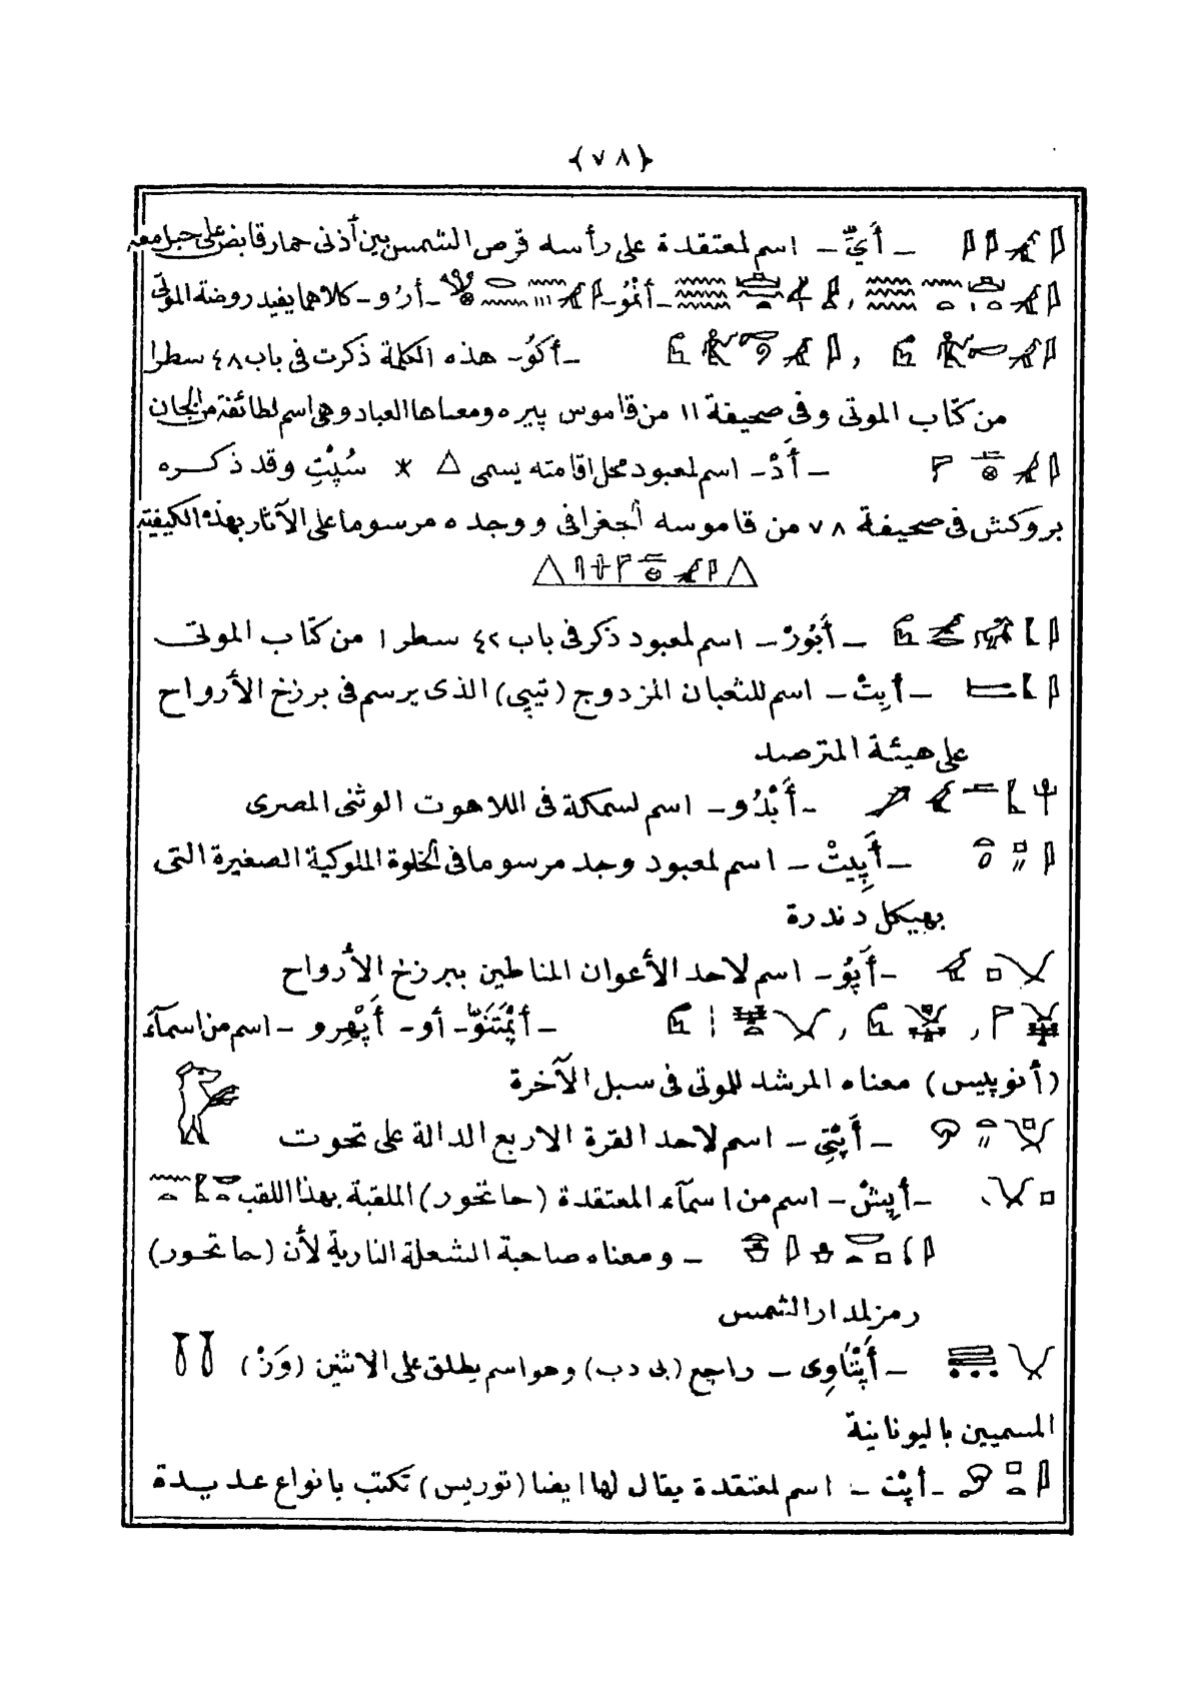 {٧٨}
– أَيّ – اسم لمعتقدة على رأسه قرص الشمس بين أذنى حمار قابض على حبل معه
– أنمُو – أرُو – كلاهما يفيد روضة الموتى
– أَكُو – هذه الكلمة ذكرت فى باب ٤٨ سطر ١
من كتاب الموتى وفى صحيفة ١١ من قاموس پيره ومعناها العباد وهى اسم لطائفة من الجان
– أَدْ – اسم لمعبود محل اقامته يسمى سُپِتْ وقد ذكره
بروكش فى صحيفة ٧٨ من قاموسه الجغرافى ووجده مرسوما على الآثار بهذه الكيفية
– أَبُورْ – اسم لمعبود ذكر فى باب ٤٢ سطر ١ من كتاب الموتى
– أبِتْ – اسم للثعبان المزدوج (تيپى) الذى يرسم فى برزخ الأرواح
على هيئة المترصد
– أَبْدُو – اسم لسمكة فى اللاهوت الوثنى المصرى
– أَپِيتْ – اسم لمعبود وجد مرسوما فى الخلوة الملوكية الصغيرة التى
بهيكل دندرة
– أَپُو – اسم لاحد الأعوان المناطين ببرزخ الأرواح
– أو – أَپْهِرو – اسم من اسمآء
(أنوپيس) معناه المرشد للموتى فى سبل الآخرة
– أَپْتِى – اسم لاحد القردة الاربع الدالة على تحوت
– أپِشْ – اسم من اسمآء المعتقدة (حاتحور) الملقبة بهذا اللقب
– ومعناه صاحبة الشعلة النارية لأن (حاتحور)
رمز لمدار الشمس
– أَپْتَاوِى – راجع (بى دب) وهو اسم يطلق على الاثنين (وَرْ)
المسميين باليونانية
– أپْت – اسم لمعتقدة يقال لها ايضا (توريس) تكتب بانواع عديدة